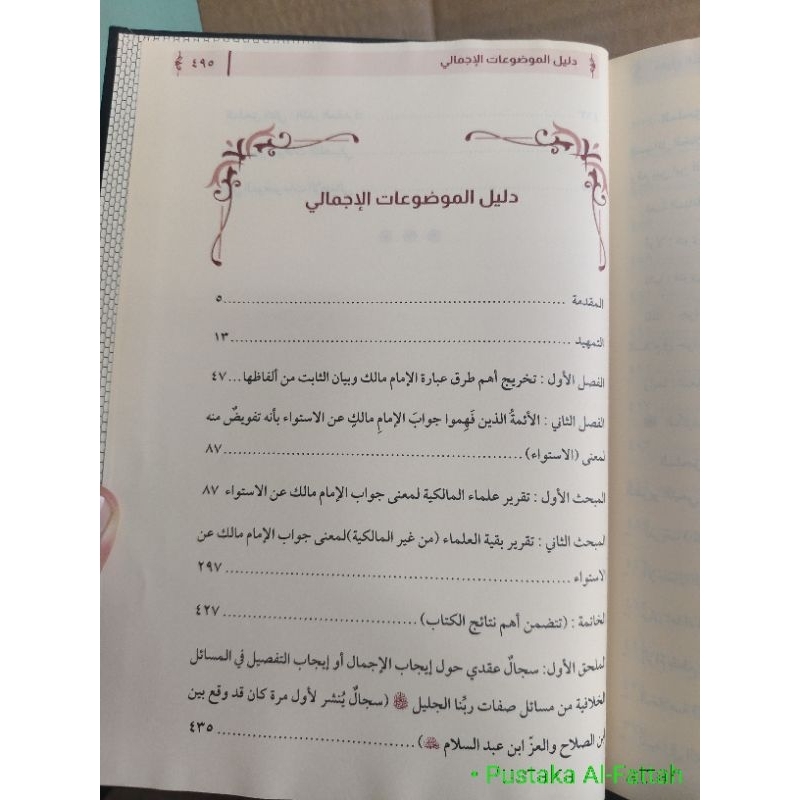 دليل الموضوعات الإجمالي ٤٩٥
دليل الموضوعات الإجمالي
المقدمة ........ ٥
التمهيد ........ ١٣
الفصل الأول : تخريج أهم طرق عبارة الإمام مالك وبيان الثابت من ألفاظها... ٤٧
الفصل الثاني : الأئمةُ الذين فَهِموا جوابَ الإمامِ مالكٍ عن الاستواء بأنه تفويضٌ منه
لمعنى (الاستواء) ........ ٨٧
المبحث الأول : تقرير علماء المالكية لمعنى جواب الإمام مالك عن الاستواء ٨٧
المبحث الثاني : تقرير بقية العلماء (من غير المالكية)لمعنى جواب الإمام مالك عن
الاستواء ........ ٢٩٧
الخاتمة : (تتضمن أهم نتائج الكتاب) ........ ٤٢٧
الملحق الأول: سجالٌ عقدي حول إيجاب الإجمال أو إيجاب التفصيل في المسائل
الخلافية من مسائل صفات ربِّنا الجليل (سجالٌ يُنشر لأول مرة كان قد وقع بين
ابن الصلاح والعزّ ابن عبد السلام) ........ ٤٣٥
• Pustaka Al-Fattah